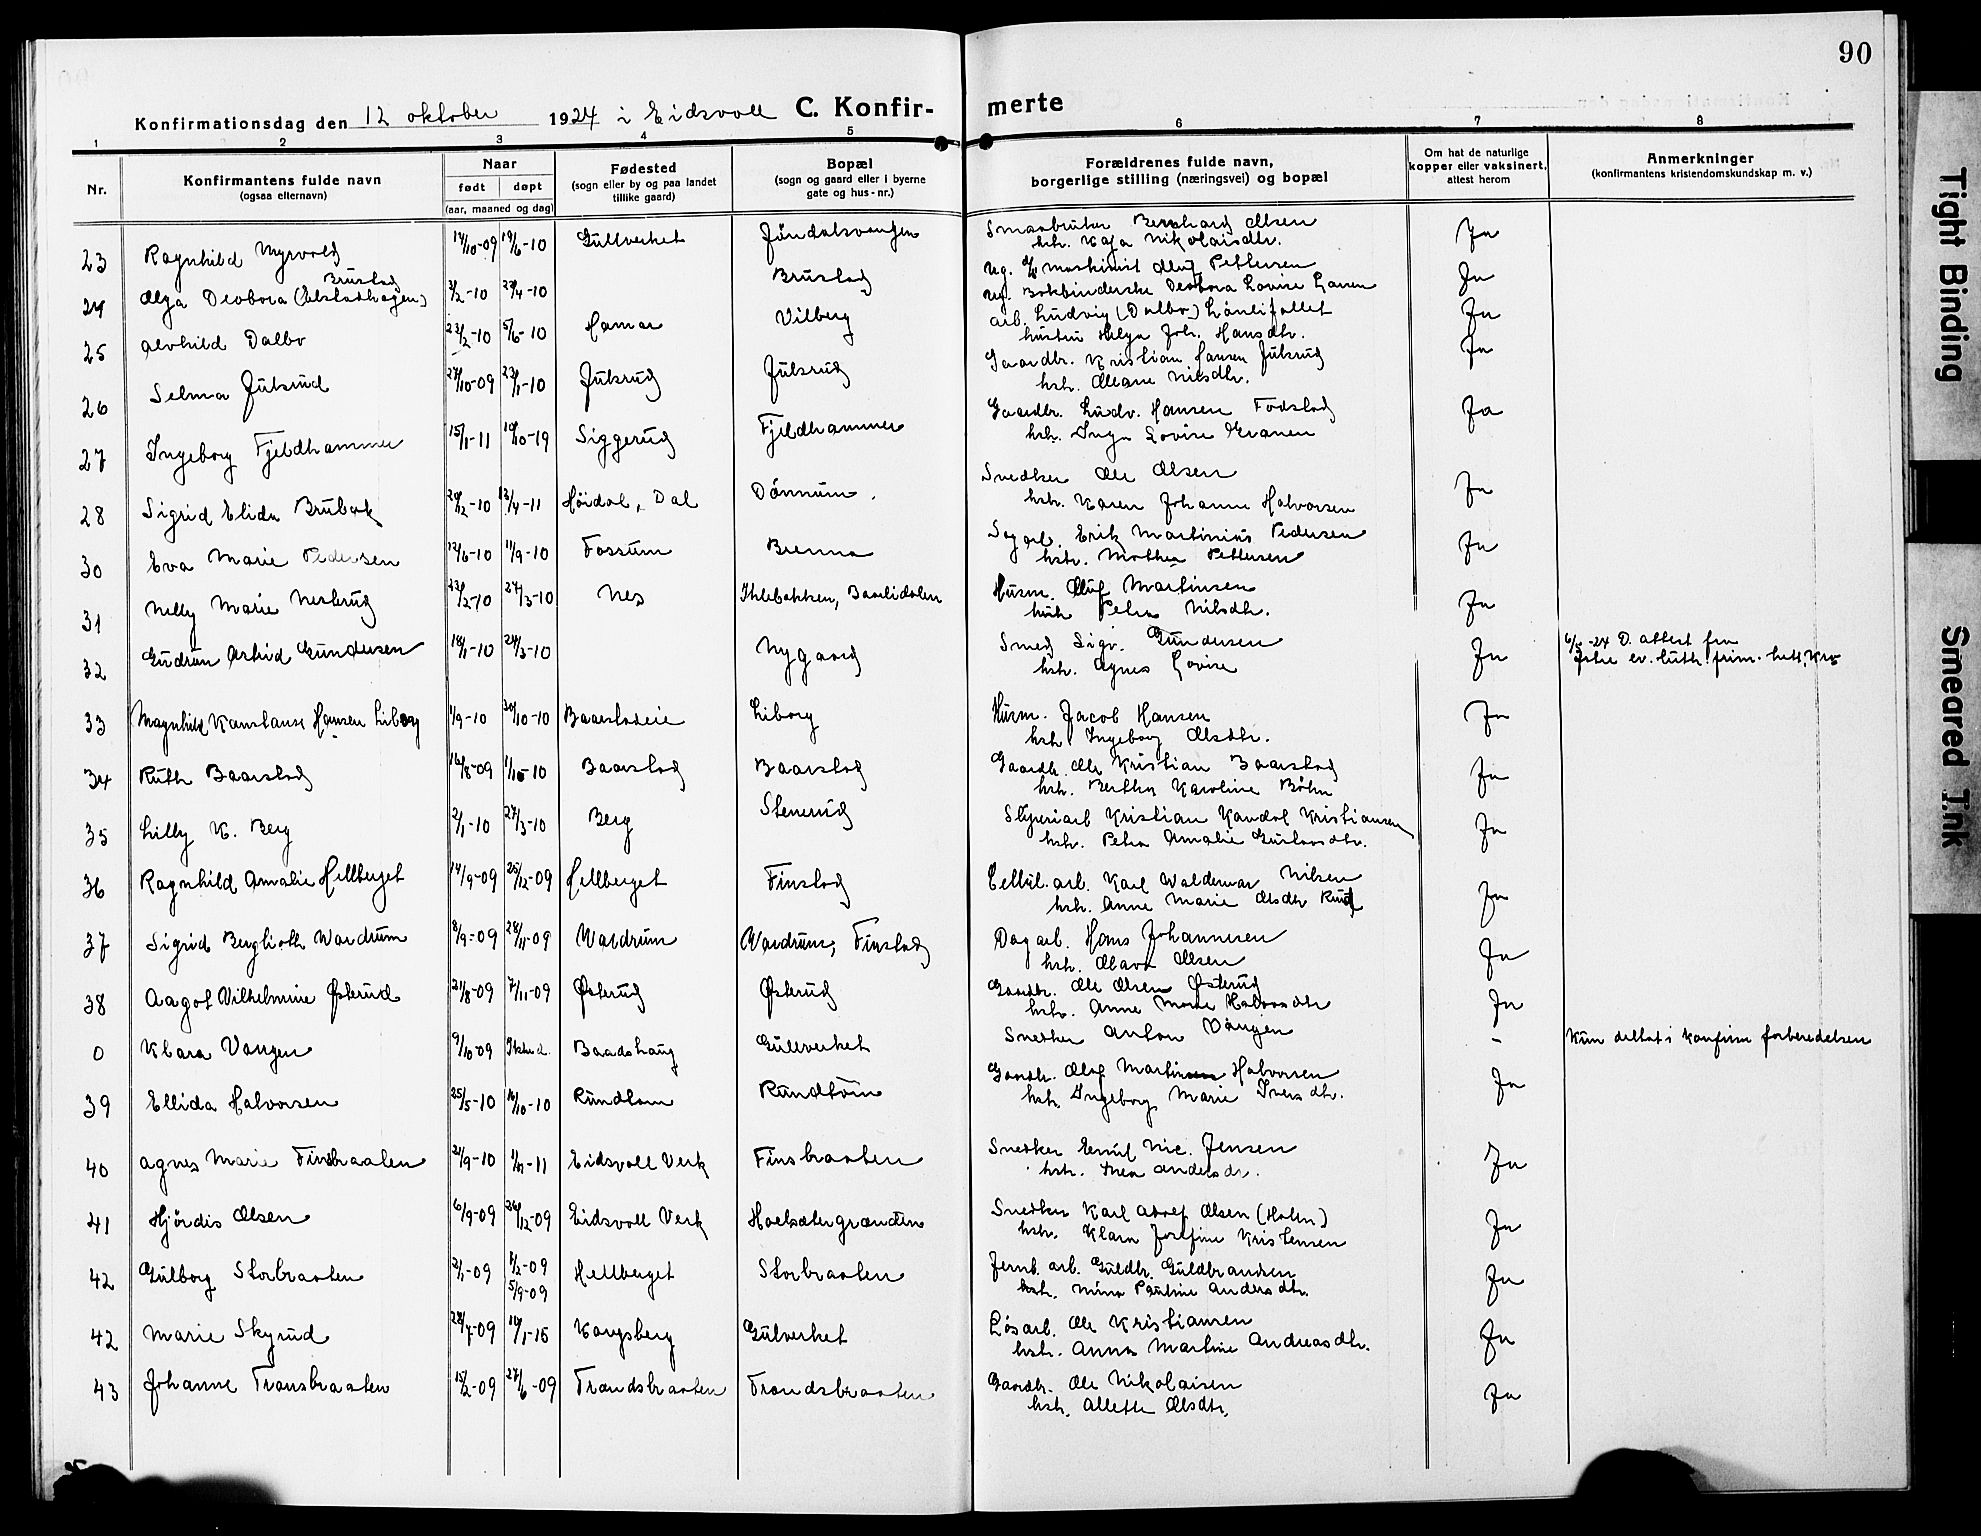 90
Konfirmationsdag den 12 oktober 1924 i Eidsvoll C. Konfir- merte
1 2 3 4 5 6 7 8
Nr.
Konfirmantens fulde navn
(ogsaa etternavn)
Naar
født døpt
(aar, maaned og dag)
Fødested
(sogn eller by og paa landet
tillike gaard)
Bopæl
(sogn og gaard eller i byerne
gate og hus-nr.)
Forældrenes fulde navn,
borgerlige stilling (næringsvei) og bopæl
Om hat de naturlige
kopper eller vaksinert,
attest herom
Anmerkninger
(konfirmantens kristendomskundskap m. v.)
23 Ragnhild Nyrvold 19/6-10 Gullverket Smaabruker Bernhard Olsen Ja
hstr. Kaja Nikolaisdtr.
Brustad
24 Olga Deobora 3/2-10 27/4-10 Brustad ug. maskinist Oluf Pettersen Ja
ug. Bokbinderske Deobora Lovise
25 Alvhild Dalbo 23/2-10 5/6-10 Hamar Vilberg arb. Ludvig (Dalbo) Ja
hustru Helga Joh. Hansdtr.
26 Selma Julsrud 27/10-09 23/1-10 Julsrud Julsrud Gaardbr. Kristian Hansen Julsrud Ja
hstr. Oleane Nilsdtr.
27 Ingeborg Fjeldhammer 15/1-11 Siggerud Fjeldhammer Gaardbr. Ludv. Hansen Fodstad Ja
hstr. Inga Lovise Granen
28 Sigrid Elida Brubak Høidal, Dal Dønnum. Snedker Ole Olsen Ja
hstr. Karen Johanne Halvorsen
30 Eva Marie Pedersen 12/6-10 11/9-10 Fossum Brenna Sagarb. Erik Martinius Pedersen Ja
hstr. Mathea Pettersen
31 Nelly Marie Nestrud 27/3-10 Nes Ihlebakken, Baalidalen Husm. Oluf Martinsen Ja
hstr. Petra Nilsdtr.
32 Gudrun Astrid Gundersen 18/1-10 Nygaard Smed Sigv. Gundersen Ja D. attest fra
hstr. Agnes Lovise ev. luth. frim.
33 Magnhild Konstanse Hansen Liborg 1/9-10 30/10-10 Baarstadeie Liborg Husm. Jacob Hansen Ja
hstr. Ingeborg Olsdtr.
34 Ruth Baarstad 16/8-09 Baarstad Baarstad Gaardbr. Ole Kristian Baarstad Ja
hstr. Bertha Karoline Bøhn
35 Lilly K. Berg 2/1-10 27/3-10 Berg Stenerud Kristian Kandol Kristiansen Ja
hstr. Petra Amalie
36 Ragnhild Amalie Hellberget 14/9-09 25/12-09 Hellberget Finstad Cellul. arb. Karl Waldemar Nilsen Ja
hstr. Anne Marie Olsdtr Ruud
37 Sigrid Berglioth Wardrum 8/9-09 28/11-09 Wardrum Wardrum, Finstad Dagarb. Hans Johannesen Ja
hstr. Olava Olsen
38 Aagot Vilhelmine Østerud 21/8-09 7/11-09 Østerud Østerud Gaardbr. Ole Olsen Østerud Ja
hstr. Anne Marie Halvorsdtr
0 Klara Vangen 9/10-09 Baadshaug Gullverket Snedker Anton Vangen - Kun deltat i konfirm forberedelsen
39 Ellida Halvorsen 25/5-10 16/10-10 Rundtom Rundtom Gaardbr. Olaf Martinsen Halvorsen Ja
hstr. Ingeborg Marie Iversdtr.
40 Agnes Marie Finsbraaten 21/9-10 Eidsvoll Verk Finsbraaten Snedker Emil Nic. Jensen Ja
hstr. Thea Andersdr.
41 Hjørdis Olsen 6/9-09 26/12-09 Eidsvoll Verk Holsætergrænden Snedker Karl Adolf Olsen (Holm) Ja
hstr. Klara Josefine Kristensen
42 Gulborg Storbraaten 2/1-09 Hellberget Storbraaten Jernb. arb. Guldbr. Guldbrandsen Ja
5/9-09 hstr. Mina Pauline Andersdtr.
42 Marie Skyrud 28/7-09 10/1-15 Kongsberg Gulverket Løsarb. Ole Kristiansen Ja
hstr. Anna Martine Andreasdtr.
43 Johanne Transbraaten 15/2-09 27/6-09 Trondsbraaten Trondsbraaten Gaardbr. Ole Nikolaisen Ja
hstr. Allette Olsdtr.
Tight Binding
Smeared Ink